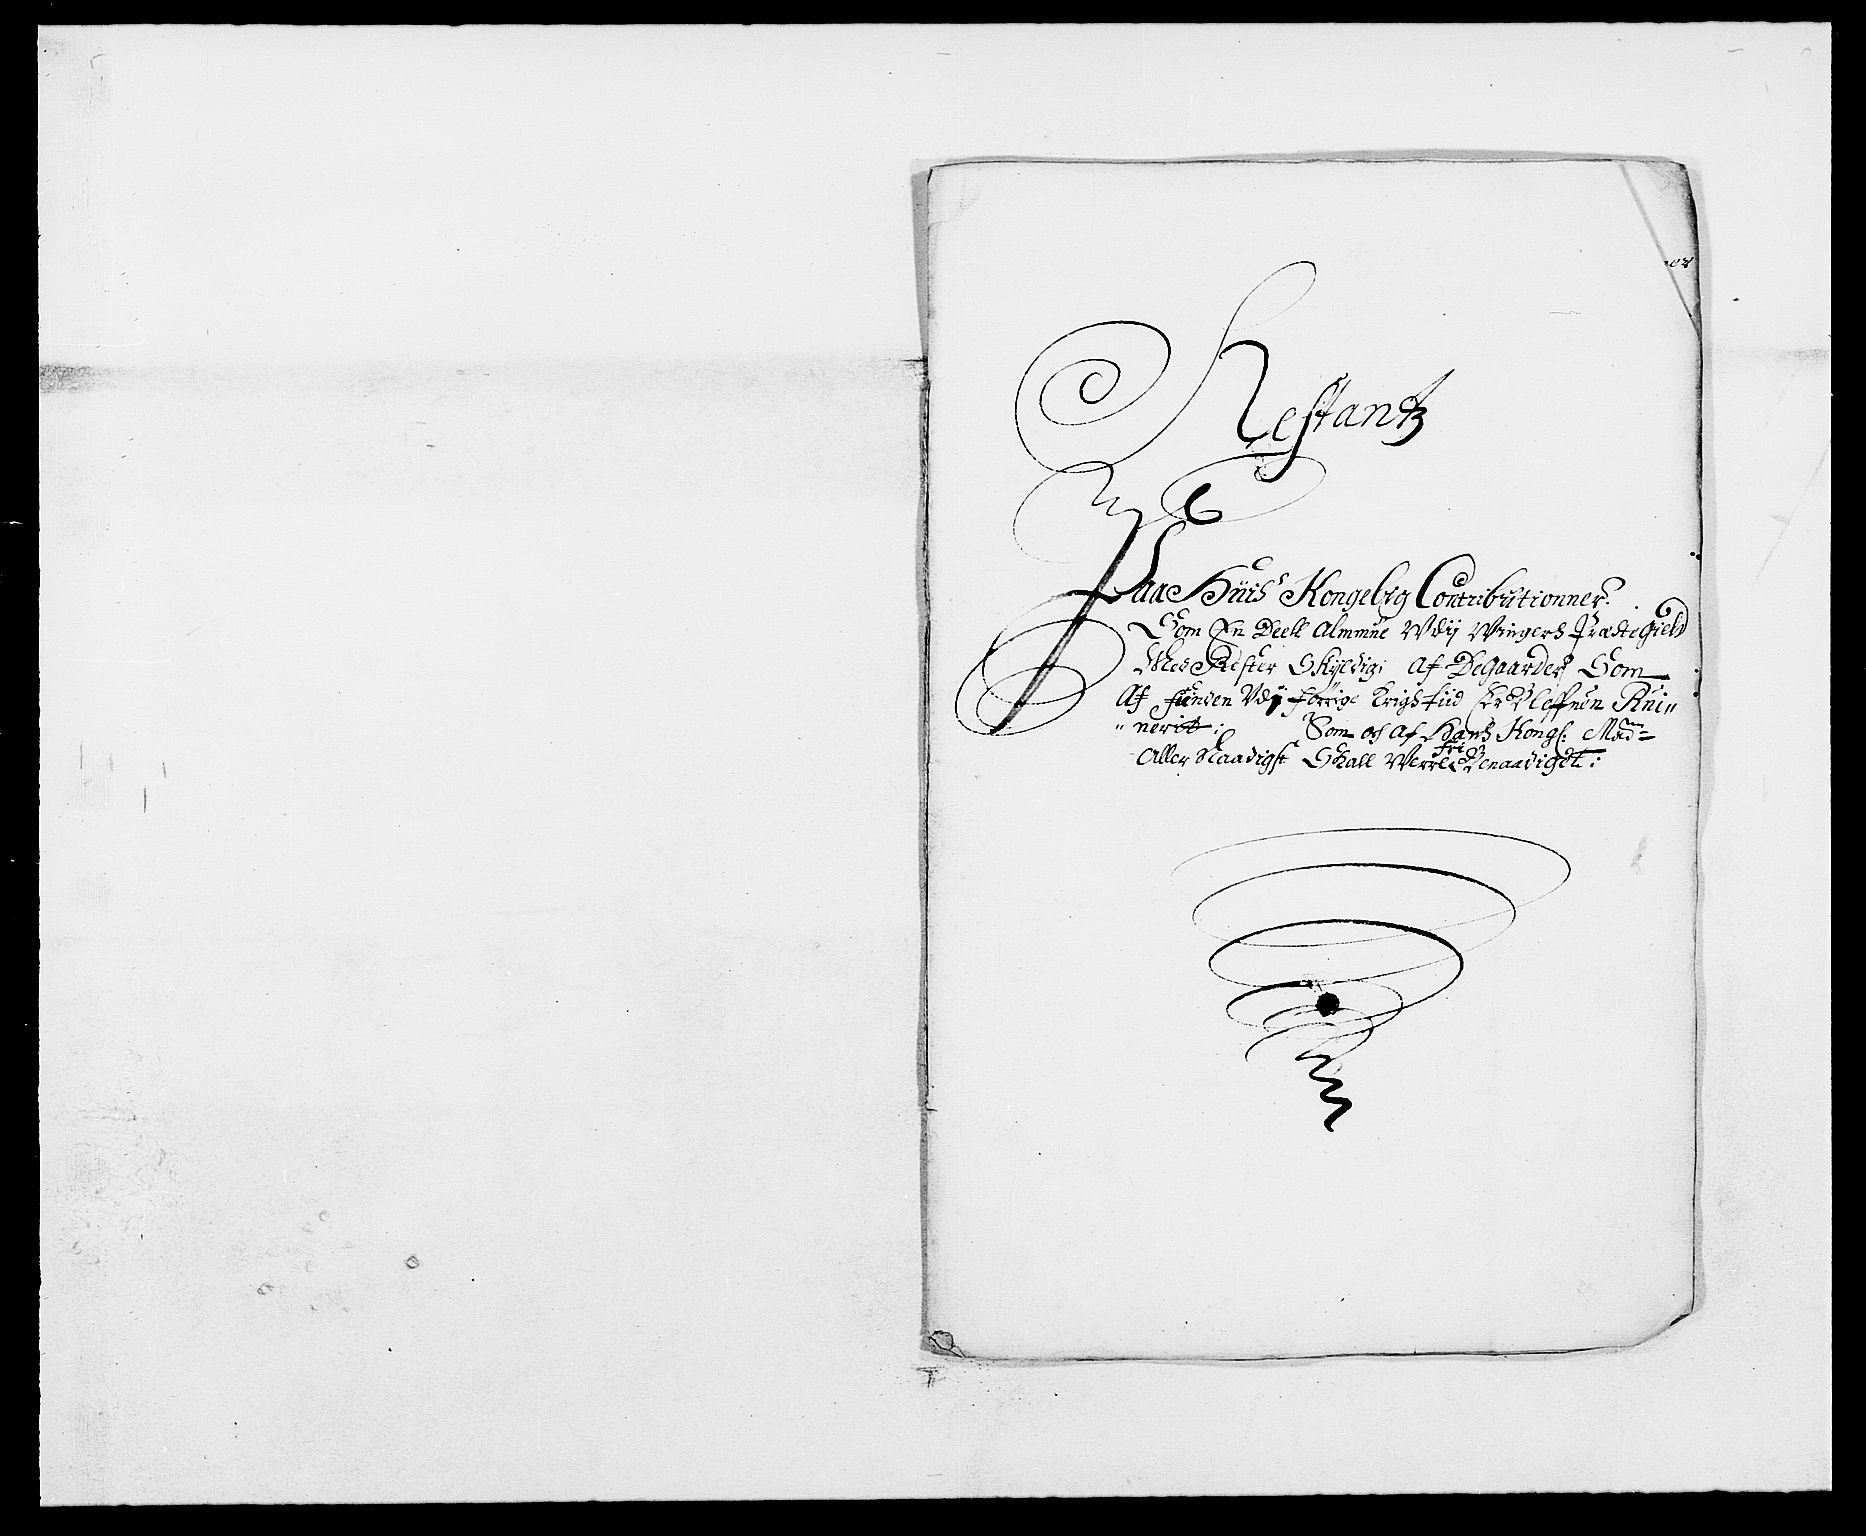 Restantz
Paa Huis Kongelig Contributionner:
Som En Deell Almmue Udij Wingers Prædtegield
Med Rester Skyldig: af De Gaarder Som
Af fienden Udj forrige Krigs tiid er Bleffuen Rui„
„nerit: Som och Af Hans Kongl: Maÿ=
Aller Naadigst Skall Werre fri Benaadigdt: